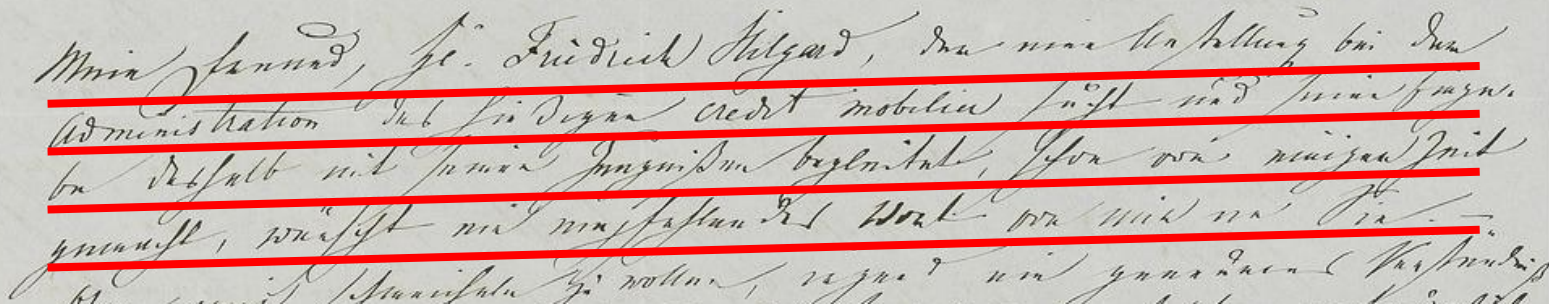 Mein Freund, Hr. Friedrich Hilgard, der eine Anstellung bei der
Administration des hiesigen credit mobilier sucht und seine Einga-
be deshalb mit seinen Zeugnißen begleitet, schon vor einigen Zeit
gemacht, wünscht ein empfehlendes Wort von mir an Sie. —
schmeicheln zu wollen, ein Verständniß